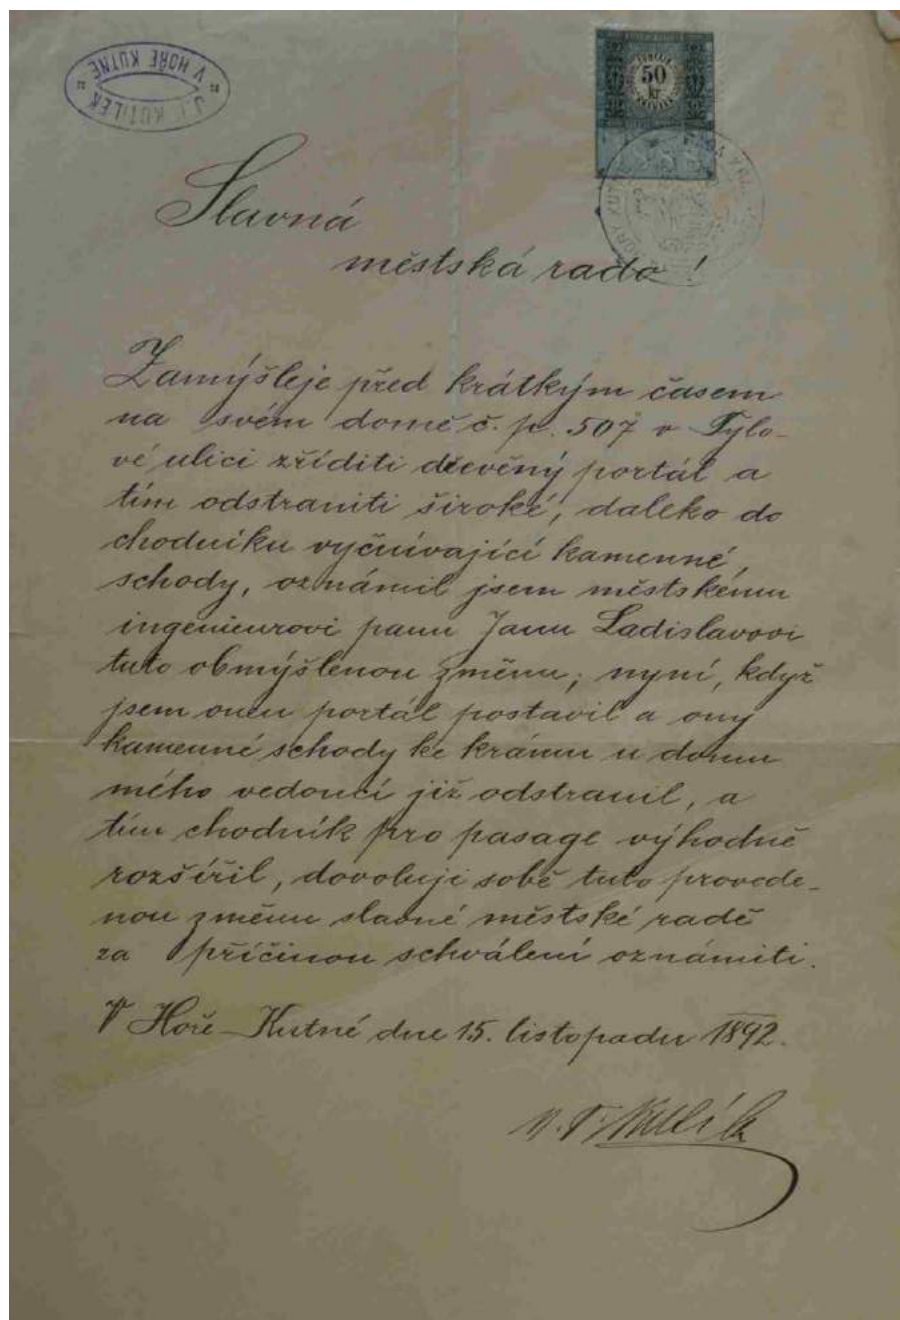 J. F. KUTÍLEK
V HOŘE KUTNÉ
50
kr
Slavná
městská rado!
Zamýšleje před krátkým časem
na svém domě č. p. 507 v Tylo-
vé ulici zříditi dřevěný portál a
tím odstraniti široké, daleko do
chodníku vyčnívající kamenné
schody, oznámil jsem městskému
ingenieurovi panu Janu Ladislavovi
tuto obmýšlenou změnu; nyní, když
jsem onen portál postavil a ony
kamenné schody ke krámu u domu
mého vedoucí již odstranil, a
tím chodník pro pasage výhodně
rozšířil, dovoluji sobě tuto provede-
nou změnu slavné městské radě
za příčinou schválení oznámiti.
V Hoře Kutné dne 15. listopadu 1892.